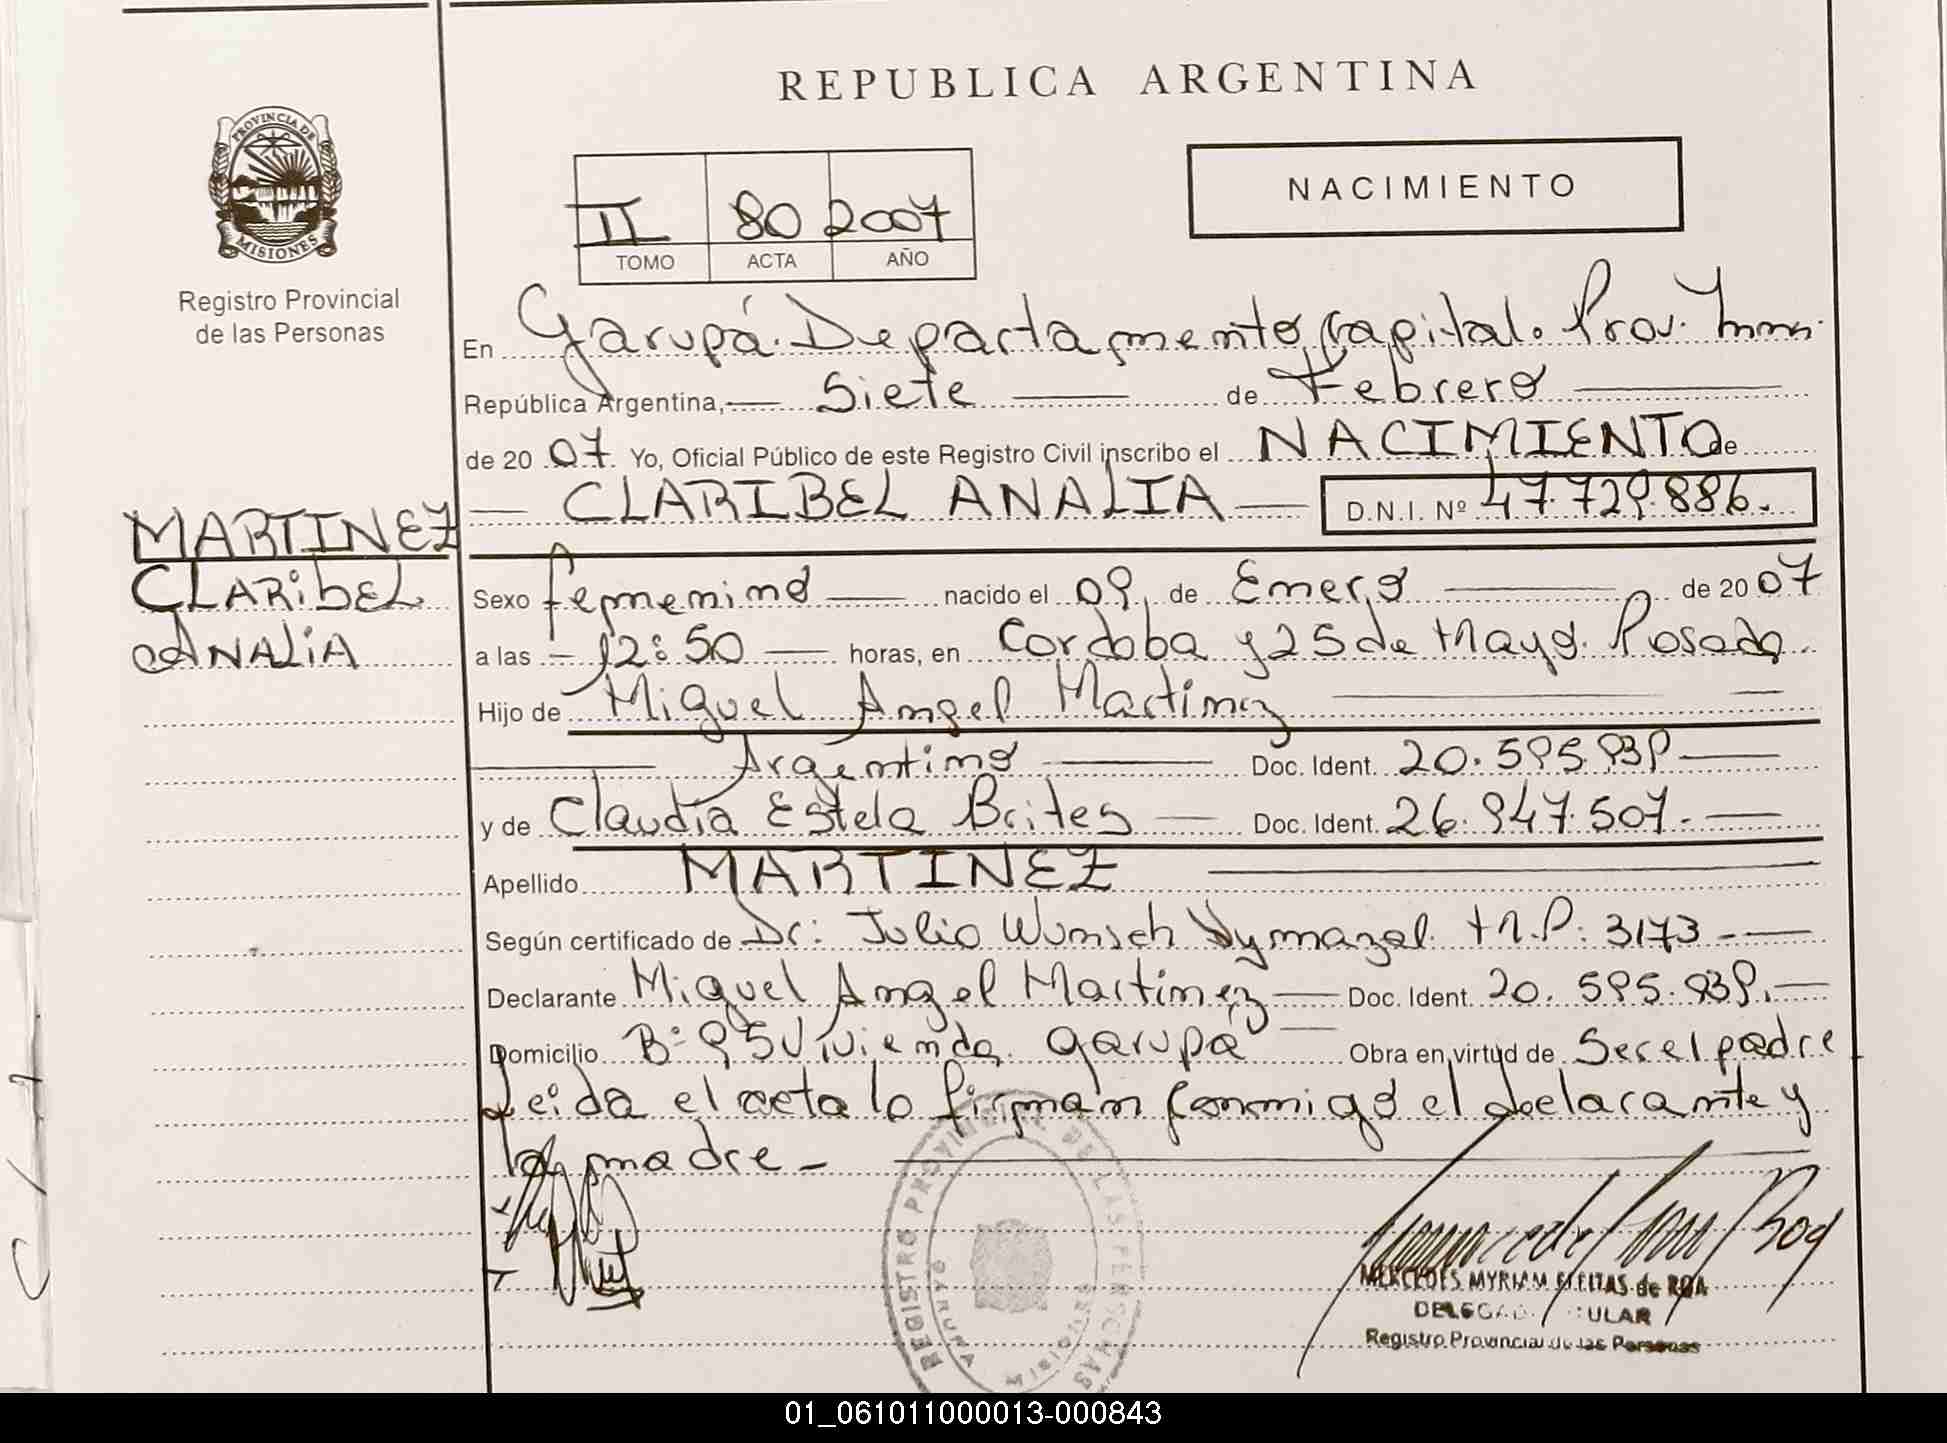 REPUBLICA ARGENTINA
PROVINCIA DE
MISIONES
Registro Provincial
de las Personas
NACIMIENTO
II 80 2007
TOMO ACTA AÑO
En Garupá. Departamento Capital. Prov. Mnes.
República Argentina, Siete de Febrero
de 2007 Yo, Oficial Público de este Registro Civil inscribo el NACIMIENTO de
CLARIBEL ANALIA D.N.I. Nº 47.729.886.
MARTINEZ
CLARIBEL
ANALIA
Sexo femenino nacido el 09 de Enero de 2007
a las 12:50 horas, en Cordoba y 25 de Mayo. Posadas
Hijo de Miguel Angel Martinez
Argentino Doc. Ident. 20.595.939
y de Claudia Estela Brites Doc. Ident. 26.947.507.
Apellido MARTINEZ
Según certificado de Dr: Julio Wunsch Vymazal M.P: 3173
Declarante Miguel Angel Martinez Doc. Ident. 20.595.939.
Domicilio Bº 95 Vivienda Garupá Obra en virtud de Ser el padre
Leida el acta lo firman conmigo el declarante y
la madre
REGISTRO PROVINCIAL DE LAS PERSONAS
MERCEDES MYRIAM FLEITAS de ROA
Registro Provincial de las Personas
01_061011000013-000843